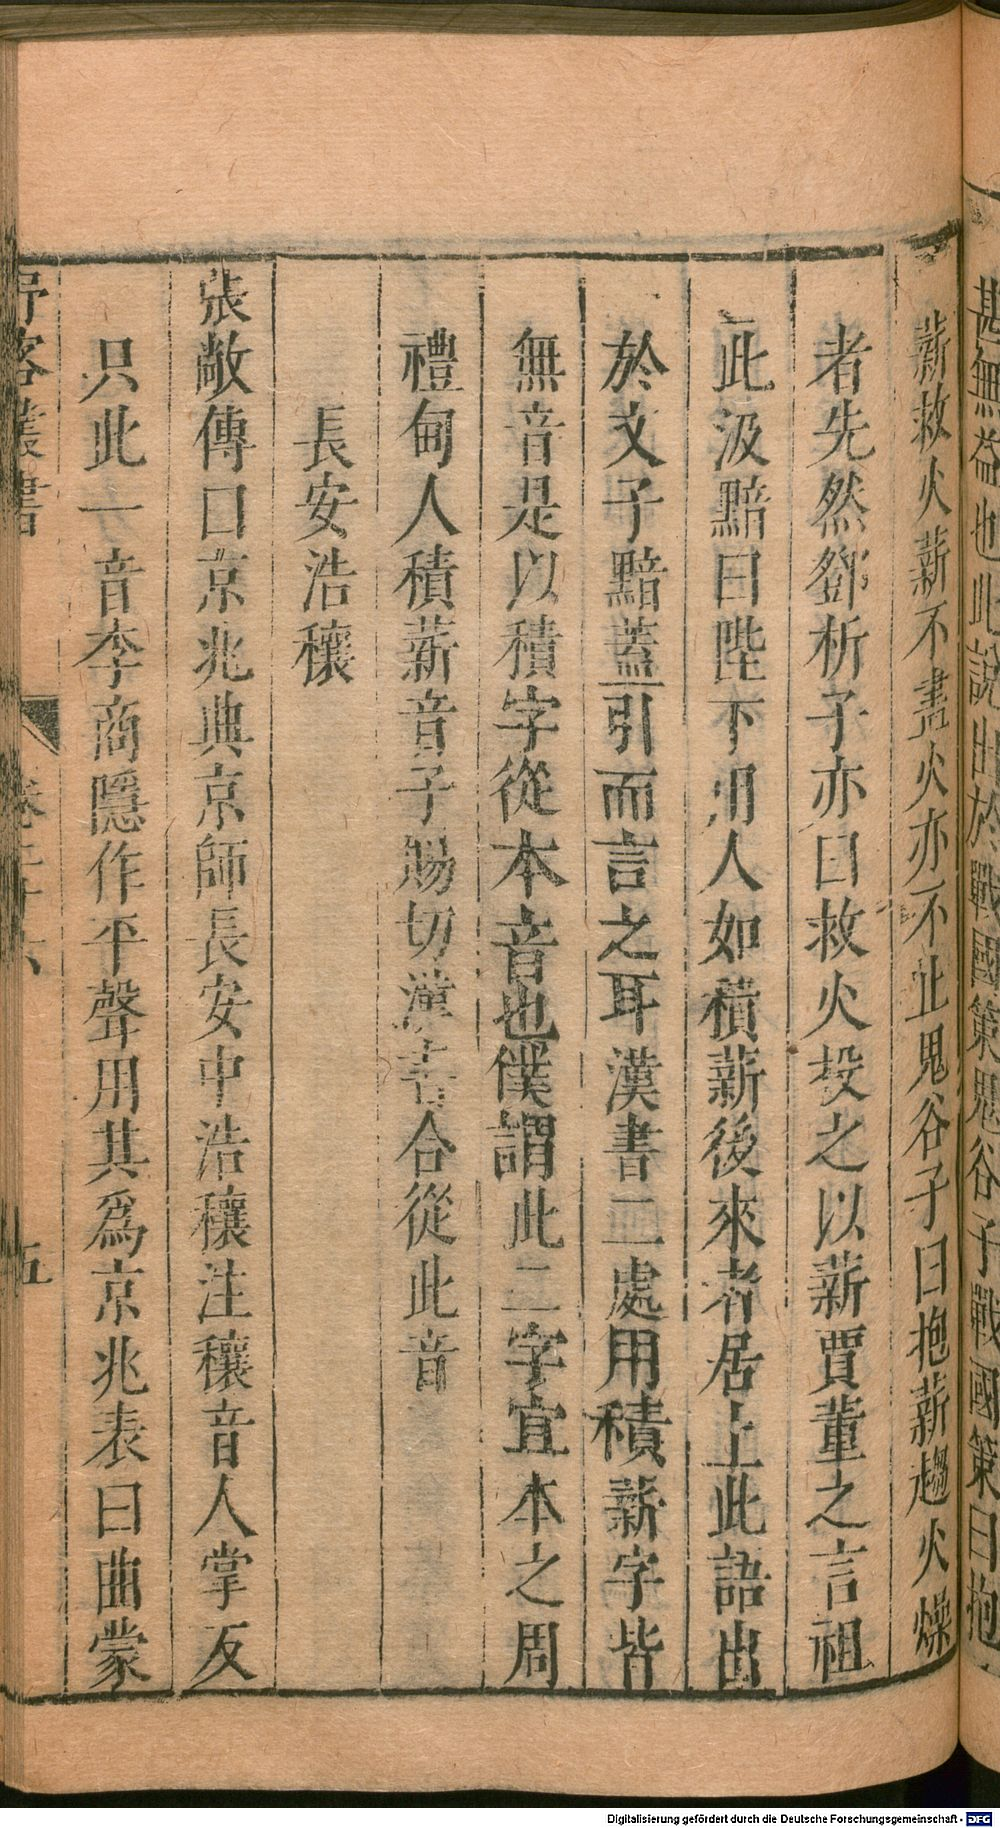 甚無益也此說出於戰國策鬼谷子戰國策曰抱
薪救火薪不盡火亦不止鬼谷子曰抱薪趨火燥
者先然鄧析子亦曰救火投之以薪賈董之言祖
此汲黯曰陛下用人如積薪後來者居上此語出
於文子黯蓋引而言之耳漢書二處用積薪字皆
無音是以積字從本音也僕謂此二字宜本之周
禮甸人積薪音子賜切漢書合從此音
長安浩穰
張敞傳曰京兆典京師長安中浩穰注穰音人掌反
只此一音李商隱作平聲用其為京兆表曰曲蒙
野客叢書
卷二十六
五
Digitalisierung gefördert durch die Deutsche Forschungsgemeinschaft - DFG